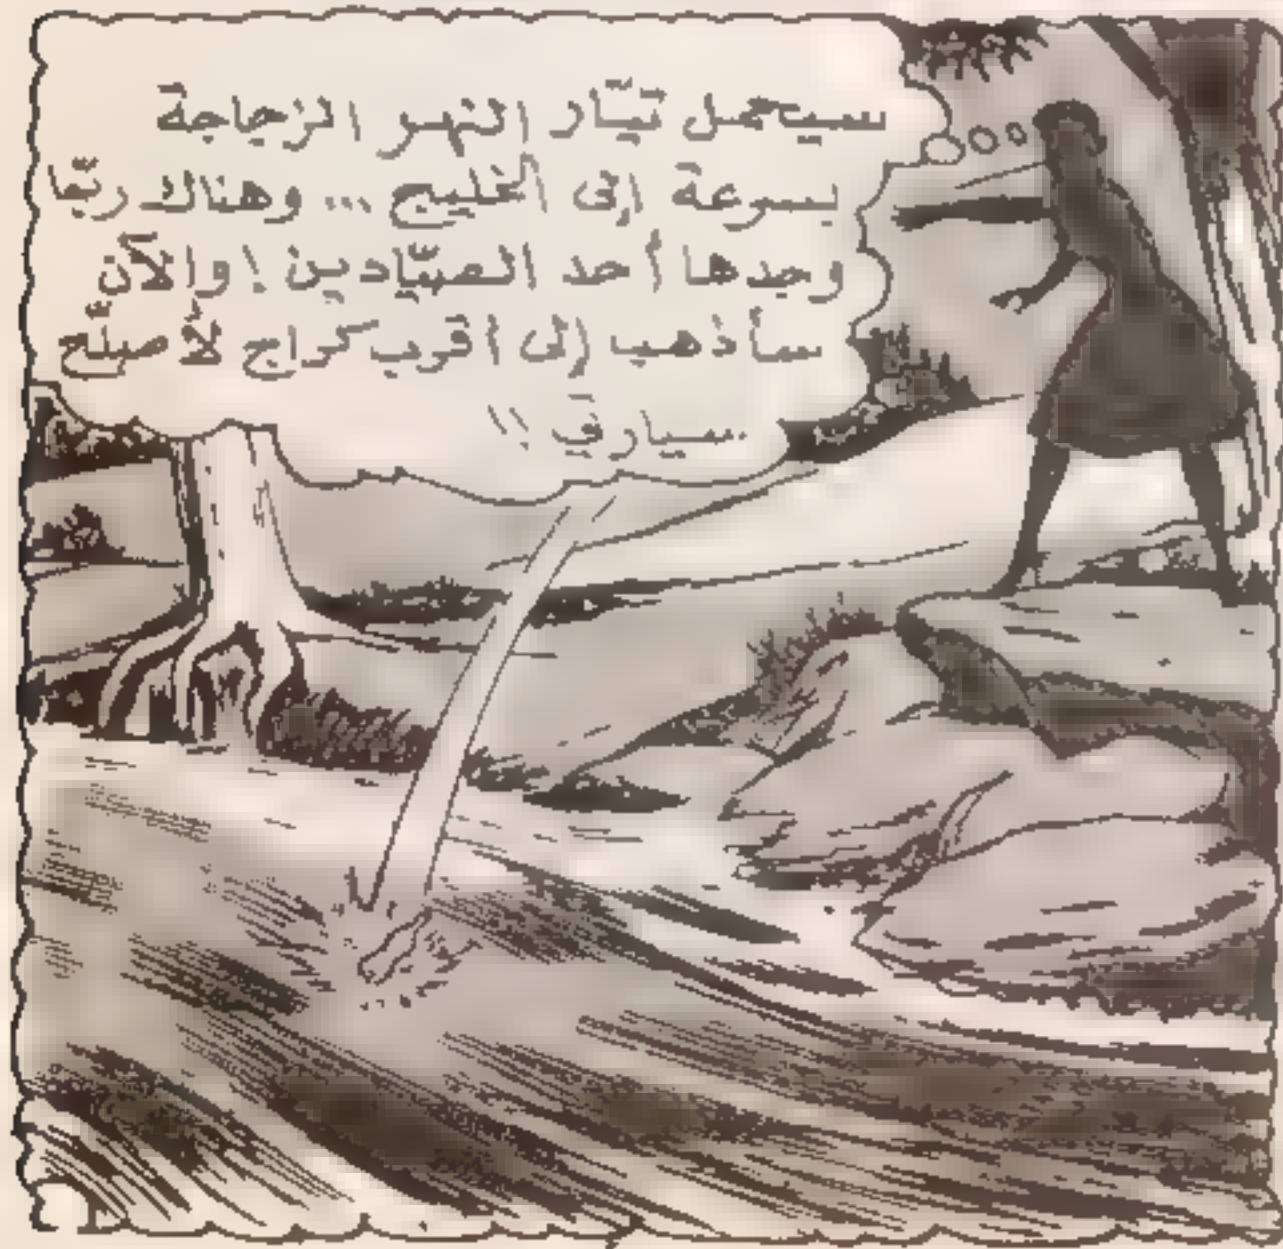 سيحمل تيّار النهر الزجاجة
بسرعة إلى الخليج ... وهناك ربّما
وجدها أحد الصيّادين ! والآن
سأذهب إلى أقرب كراج لأصلّح
سيارتي !!